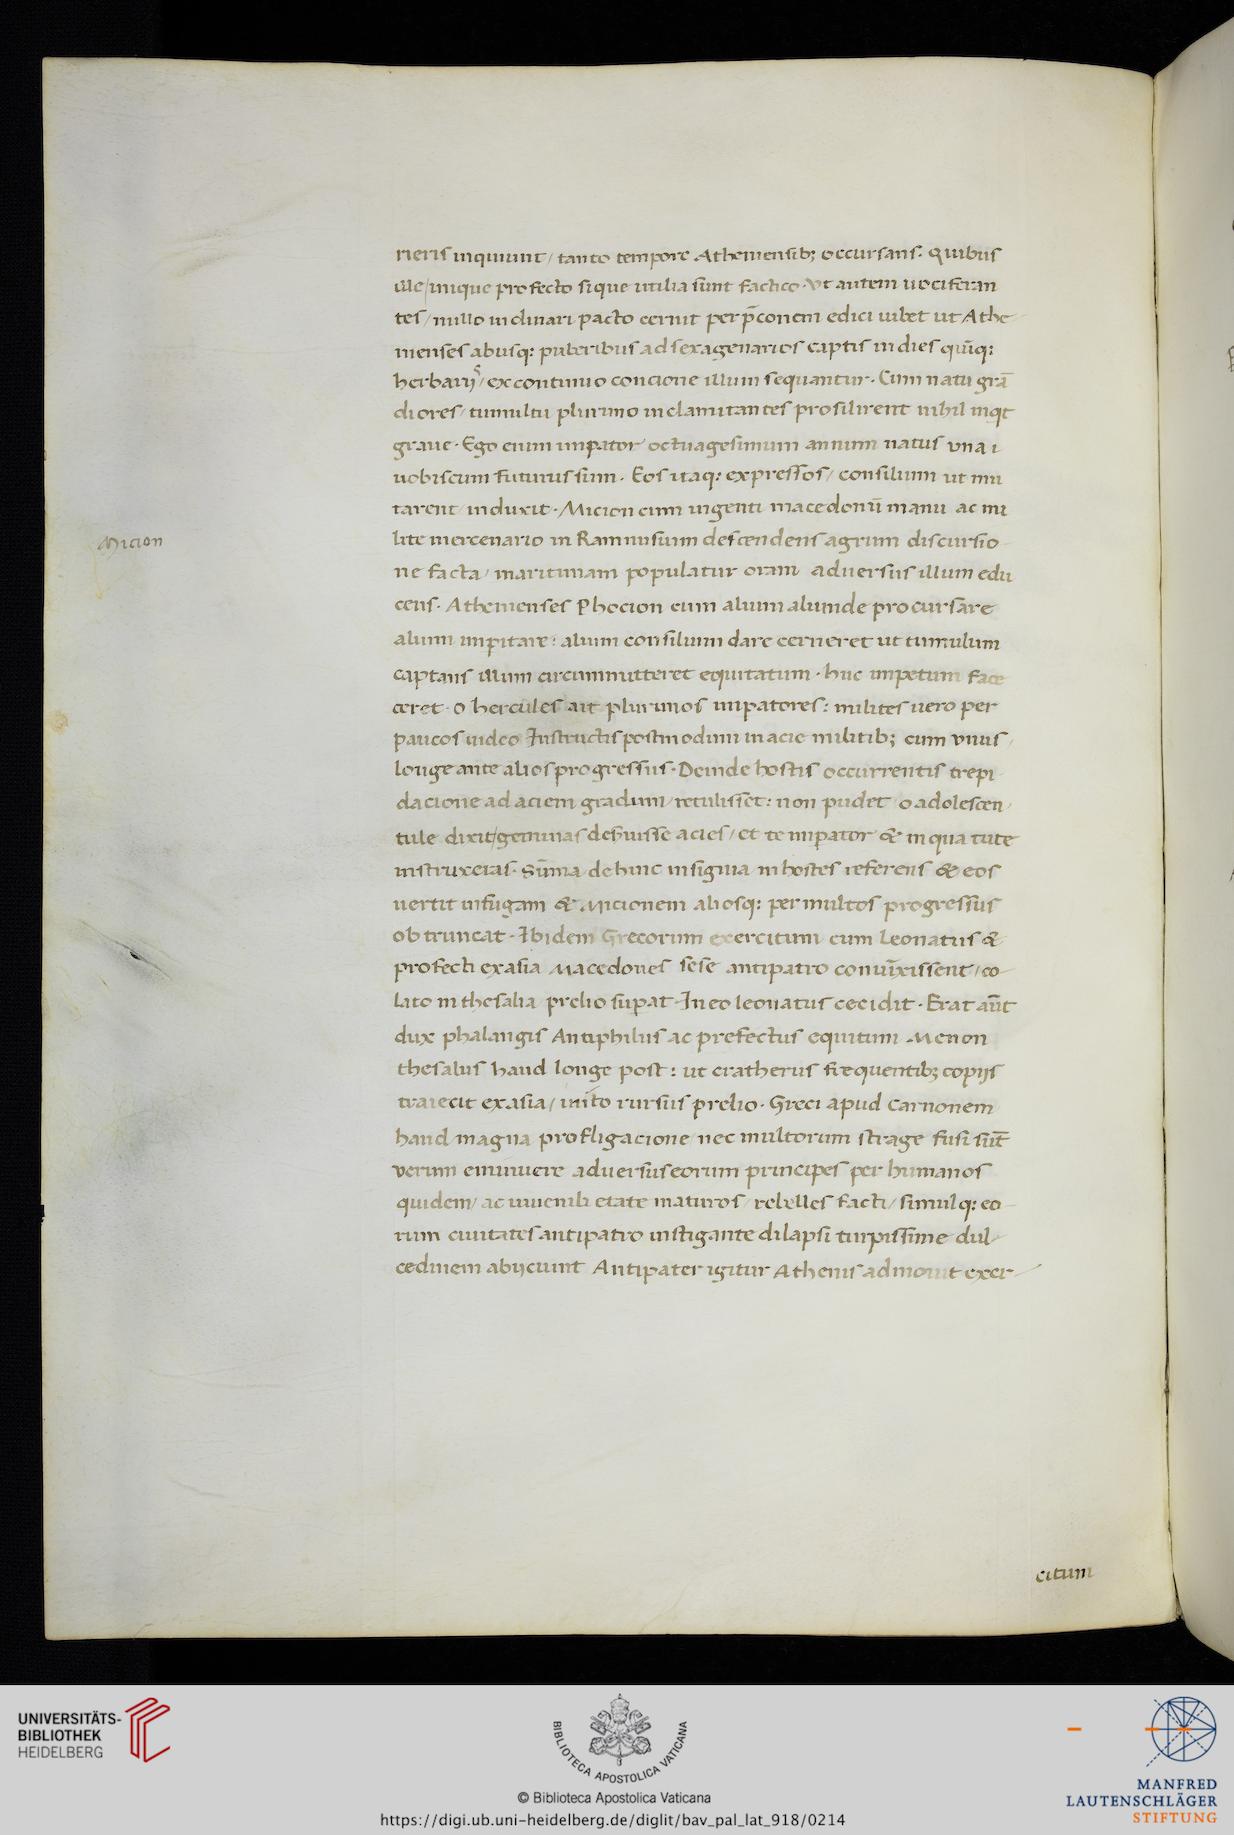 rieris inquiunt / tanto tempore Atheniensib; occursans. Quibus
ille / inique profecto si que utilia sunt factico. Vt autem uociferan
tes / nullo inclinari pacto cernit per p̄conem edici iubet ut Athe
nienses abusq: puberibus ad sexagenarios captis in dies quīq:
herbarijs / ex continuo concione illum sequantur. Cum natu grā
diores / tumultu plurimo inclamitantes prosilirent nihil inqt
graue. Ego enim impator octuagesimum annum natus vna i
uobiscum futurus sum. Eos itaq: expressos / consilium ut mu
tarent induxit. Micion cum ingenti macedonū manu ac mi
Micion
lite mercenario in Ramnusium descendens agrum discursio
ne facta / maritimam populatur oram aduersus illum edu
cens. Athenienses Phocion cum alium aliunde procursare
alium impitare: alium consilium dare cerneret ut tumulum
captans illum circummitteret equitatum. huc impetum face
ceret. o hercules ait plurimos impatores: milites uero per
paucos uideo Instructis postmodum in acie militib; cum vnus
longe ante alios progressus. Deinde hostis occurrentis trepi
dacione ad aciem gradum / retulisset: non pudet o adolescen
tule dixit / geminas deseruisse acies / et te impator & in qua tute
instruxeras. Sūma dehinc insignia in hostes referens & eos
uertit in fugam & Micionem aliosq: per multos progressus
obtruncat. Ibidem Grecorum exercitum cum Leonatus &
profecti ex asia Macedones sese antipatro coniūxissent / co
lato in thesalia prelio supat. In eo leonatus cecidit. Erat aūt
dux phalangis Antiphilus ac prefectus equitum Menon
thesalus haud longe post: ut cratherus frequentib; copijs
traiecit ex asia / inito rursus prelio. Greci apud Carnonem
haud magna profligacione nec multorum strage fusi sūt
verum
aduersus eorum principes per humanos
quidem / ac iuuenili etate maturos / rebelles facti / simulq: eo
rum ciuitates antipatro instigante dilapsi turpissime dul
cedinem abijciunt Antipater igitur Athenis admouit exer
citum
UNIVERSITÄTS-
BIBLIOTHEK
HEIDELBERG
BIBLIOTECA APOSTOLICA VATICANA
© Biblioteca Apostolica Vaticana
https://digi.ub.uni-heidelberg.de/diglit/bav_pal_lat_918/0214
MANFRED
LAUTENSCHLÄGER
STIFTUNG